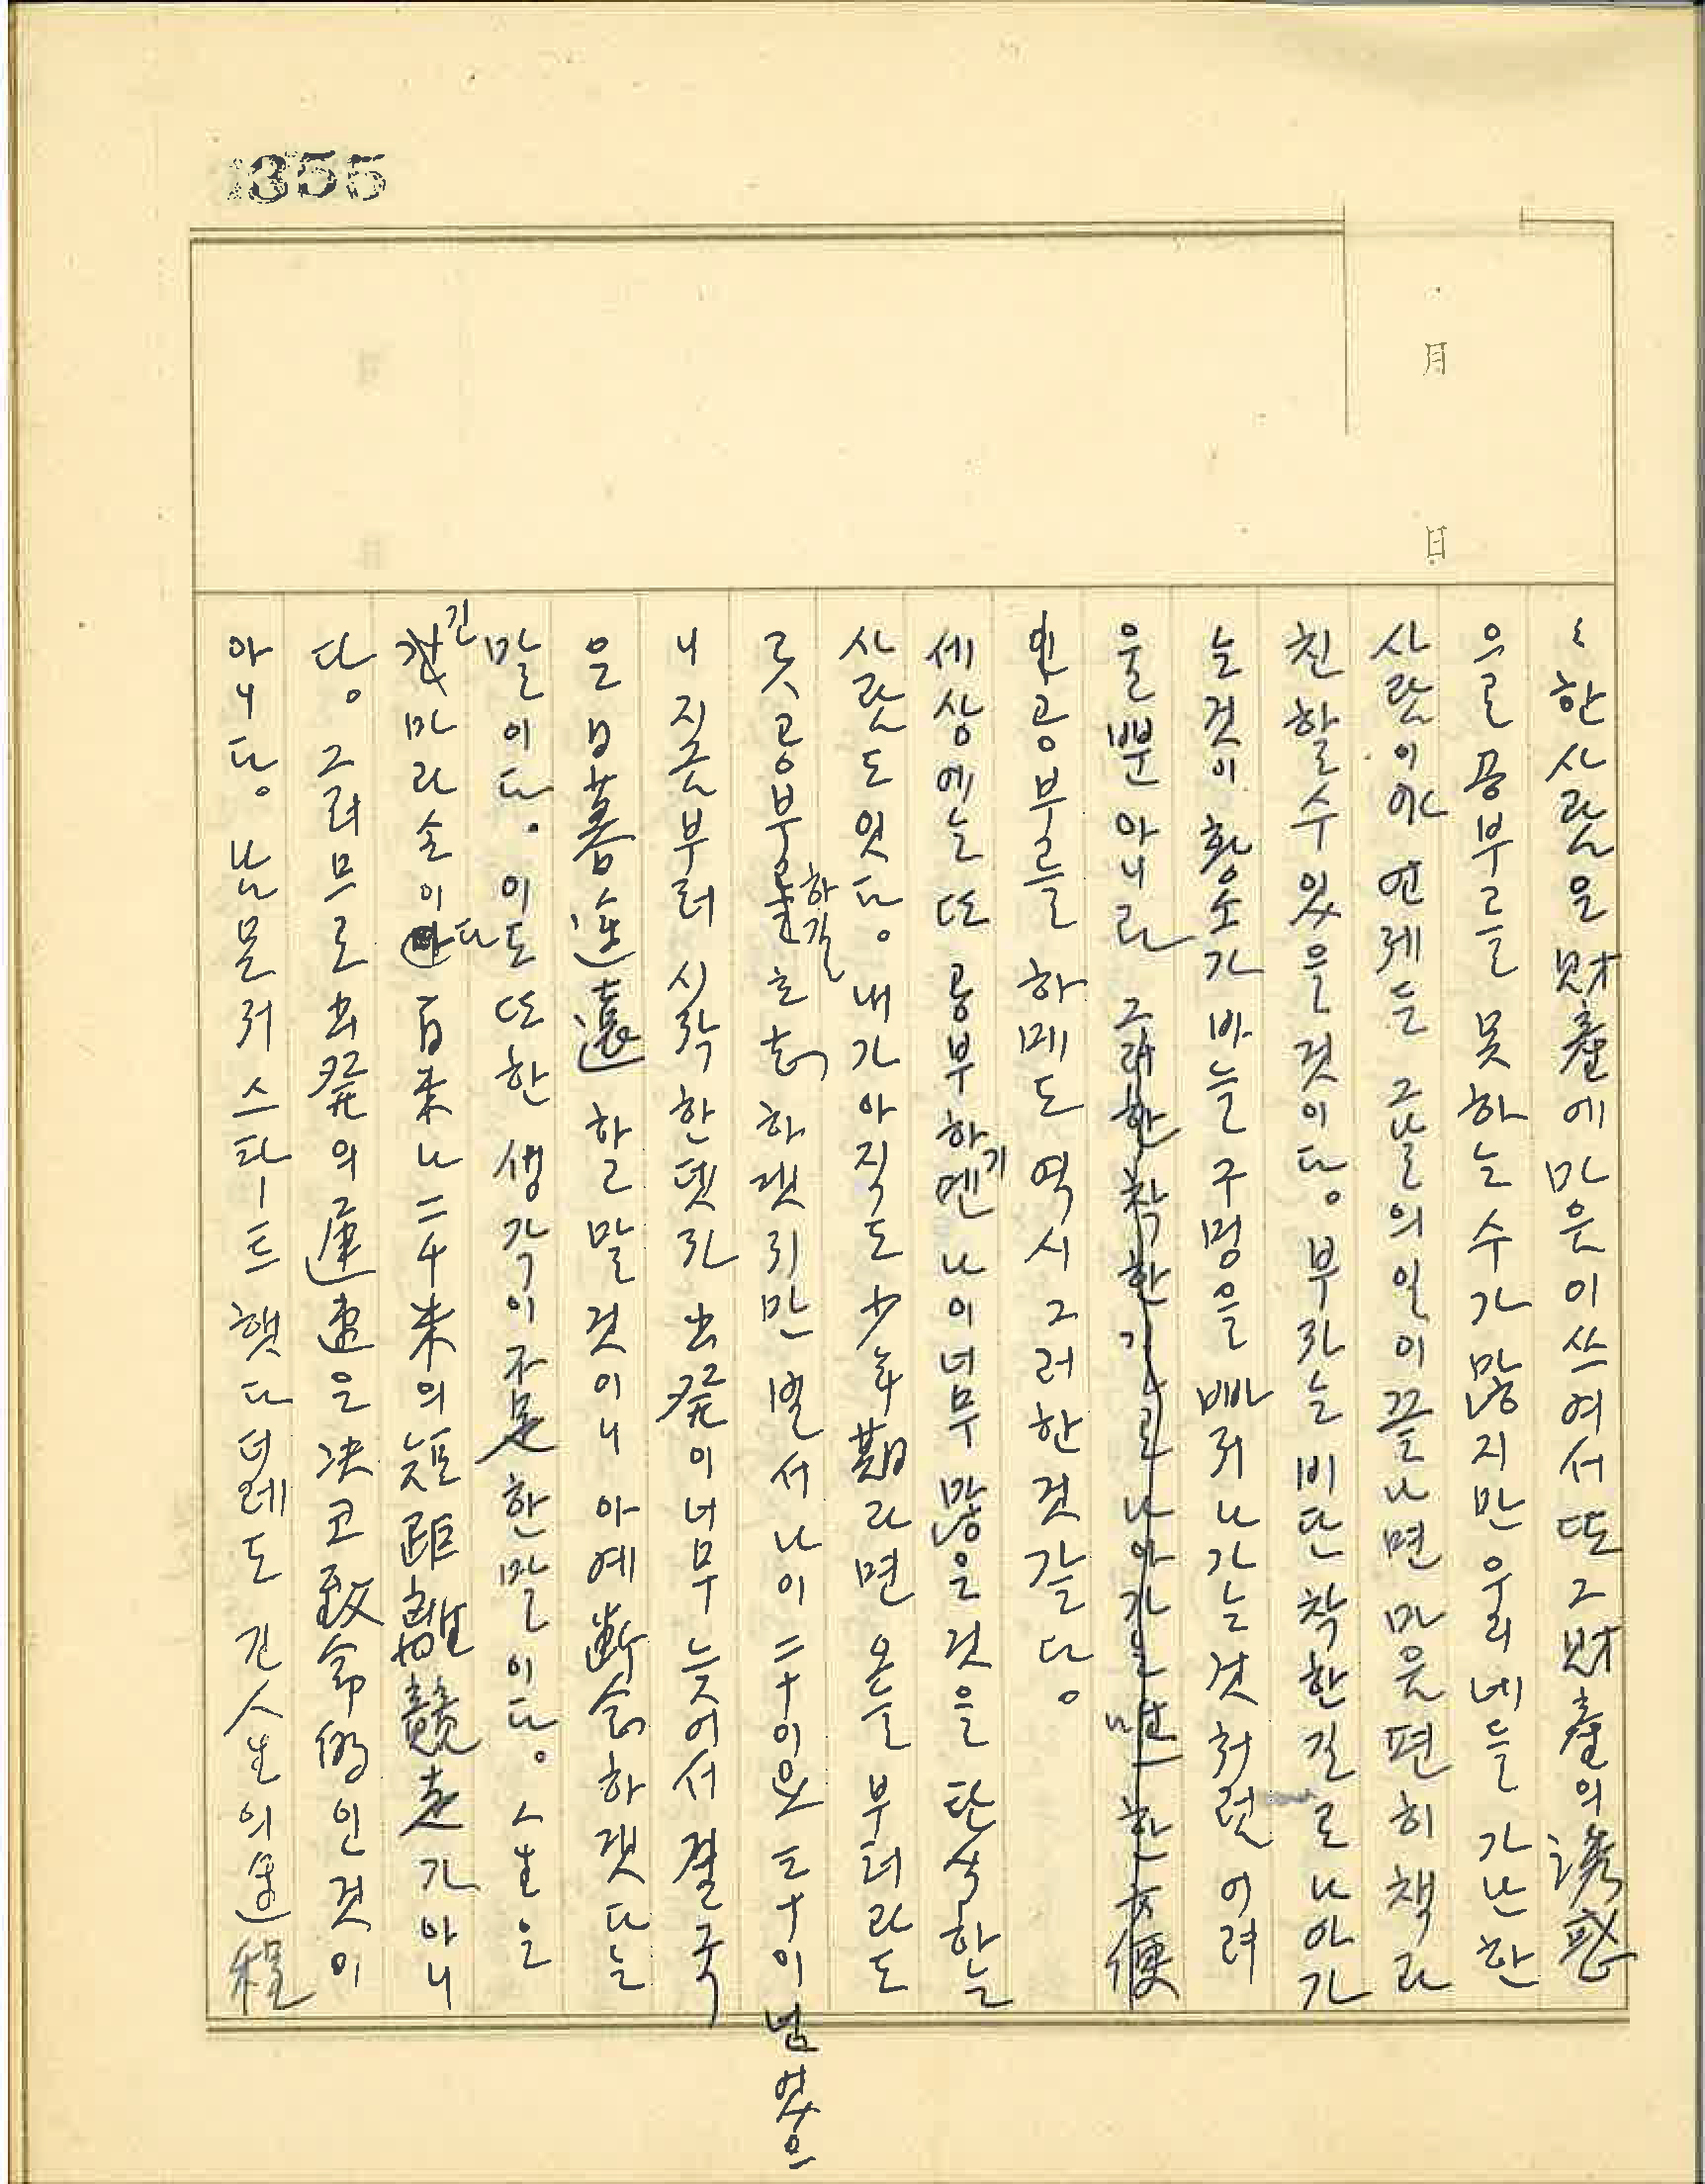 355
月
日
한 사람은 財産에 마음이 쓰여서 또 그 財産의 誘惑
으로 공부를 못하는 수가 많지만 우리네들 가난한
사람이야 언제든 그날의 일이 끝나면 마음 편히 책과
친할 수 있을 것이다. 부자는 비단 착한 길로 나아가
는 것이 황소가 바늘구멍을 빠저나가는 것처럼 어려
울 뿐 아니라 그러한 착한 길로 나아가는 한
공부를 하메도 역시 그러한 것 같다.
세상에는 또 공부하기엔 나이 너무 많은 것을 탄식하는
사람도 잇다. 내가 아직도 少年期라면 오늘부터라도
곳 공부하길 하겟지만 벌서 나이 二十이요 三十이 넘었으
니 지금부터 시작한댓자 出発이 너무 늦어서 결국
은 日暮途遠할 말 것이니 아예 断念하겟다는
말이다. 이도 또한 생각이 不足한 말이다. 人生은
긴 마라손이다 百米나 二千米의 短距離競走가 아니
다. 그러므로 出発의 遲速은 決코 致命的인 것이
아니다. 남 몬저 스타-트 햇다더레도 긴 人生의 途程